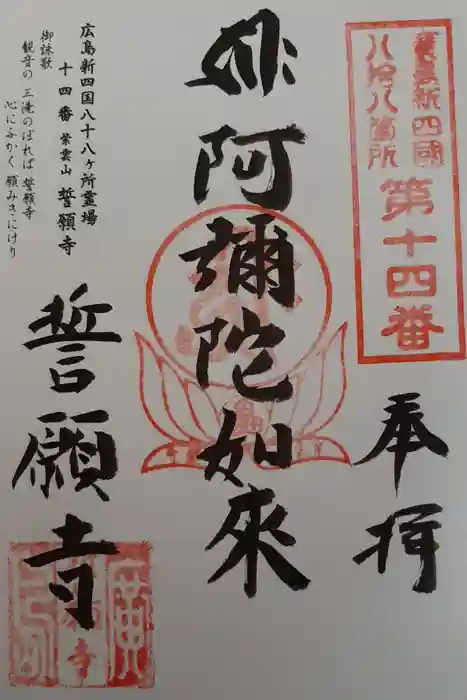 廣島新四國
八拾八箇所
第十四番
奉拝
阿彌陀如來
広島新四国八十八ヶ所霊場
十四番 紫雲山 誓願寺
御詠歌
観音の 三滝のぼれば 誓願寺
心にふかく 願みさにけり
誓願寺